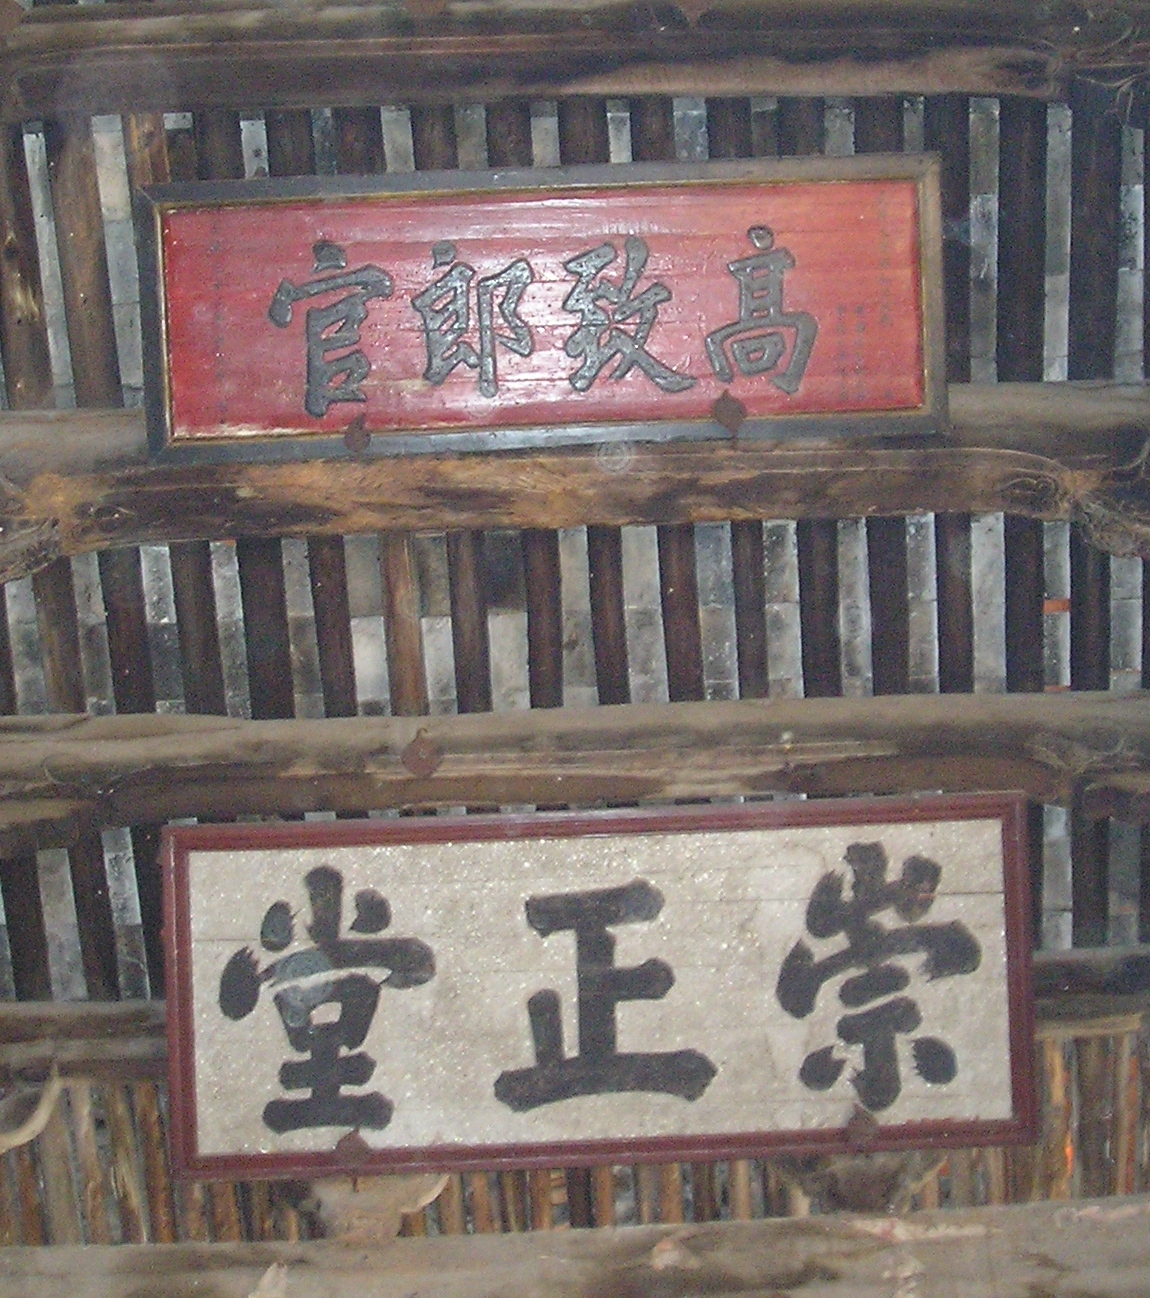 高致郎官
崇正堂